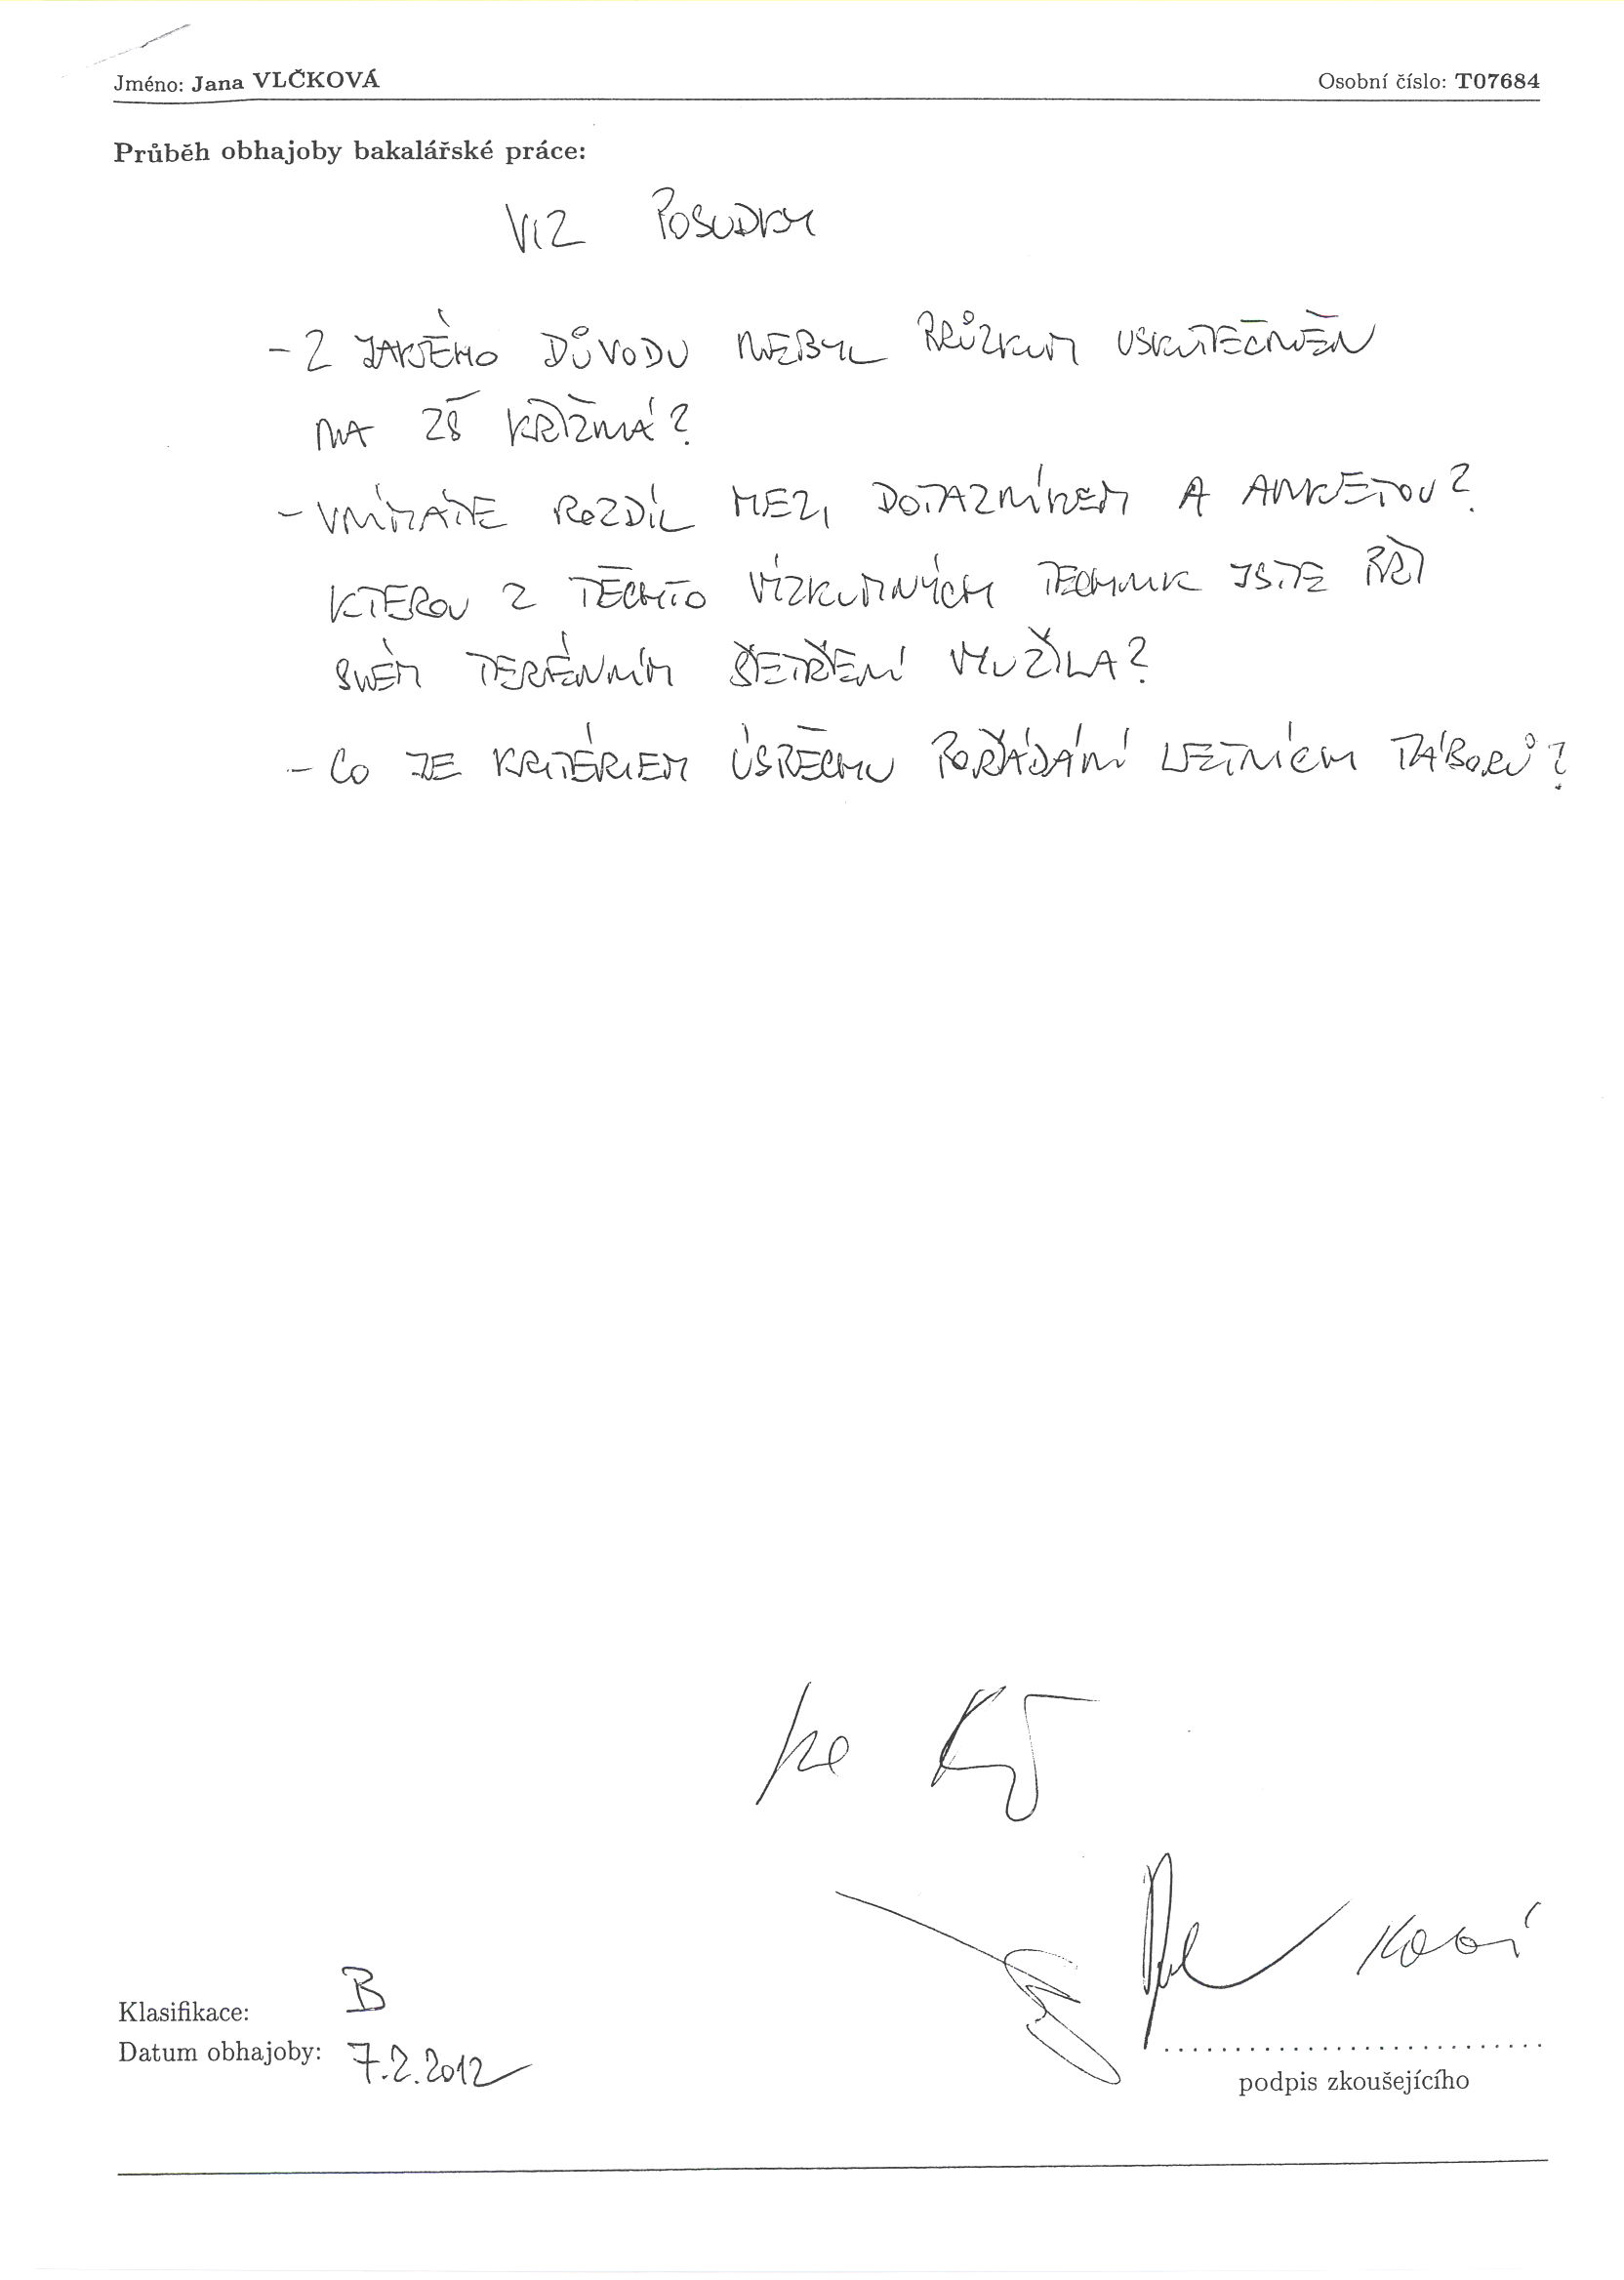 Jméno: Jana VLČKOVÁ Osobní číslo: T07684
Průběh obhajoby bakalářské práce:
VIZ POSUDKY
- Z JAKÉHO DŮVODU NEBYL PRŮZKUM USKUTEČNĚN
NA ZŠ KŘÍŽNÁ?
- VNÍMÁTE ROZDÍL MEZI DOTAZNÍKEM A ANKETOU?
KTEROU Z TĚCHTO VÍZKUMNÝCH TECHNIK JSTE PŘI
SVÉM TERÉNNÍM ŠETŘENÍ VYUŽILA?
- CO JE KRITÉRIEM ÚSPĚCHU POŘÁDÁNÍ LETNÍCH TÁBORŮ?
Klasifikace: B
Datum obhajoby: 7.2.2012
podpis zkoušejícího